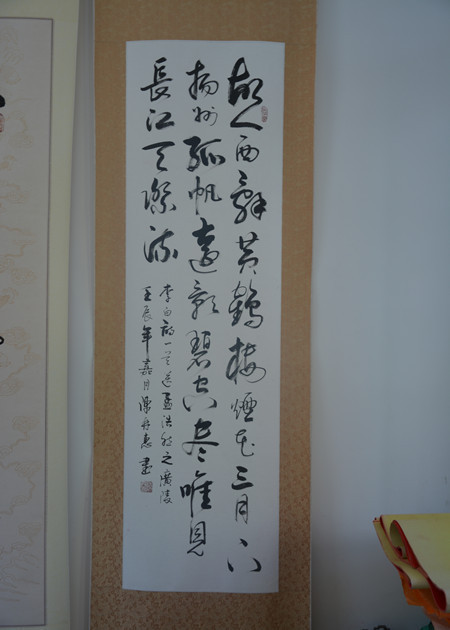 故人西辭黃鶴樓煙花三月下
揚州孤帆遠影碧空盡唯見
長江天際流
李白詩一首送孟浩然之廣陵
壬辰年嘉月 書